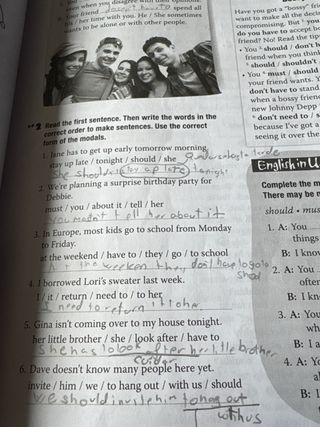 when you disagree with their opinions.
Your friend doesn't have to spend all
her time with you. He / She sometimes
wants to be alone or with other people.
2 Read the first sentence. Then write the words in the
correct order to make sentences. Use the correct
form of the modals.
1. Jane has to get up early tomorrow morning.
stay up late / tonight / should / she
She shouldn't stay up late tonight
2. We're planning a surprise birthday party for
Debbie.
must / you / about it / tell / her
You mustn't tell her about it
3. In Europe, most kids go to school from Monday
to Friday.
at the weekend / have to / they / go / to school
the weeken they don't have to go to
4. I borrowed Lori's sweater last week.
I / it / return / need to / to her
I need to return it to her
5. Gina isn't coming over to my house tonight.
her little brother / she / look after / have to
she has to look after her little brother
6. Dave doesn't know many people here yet.
invite / him / we / to hang out / with us / should
we should invite him to hang out
with us
Have you got a "bossy"
want to make all the deci
compromising. But
do you have to accept
friend? No! Read the tip
• You should / don't h
friend when you thin
should / shouldn't
• You must / should
your friend wants. Y
don't have to stand
when a bossy frien
new Johnny Depp
don't need to / s
because I've got a
seeing it over the
English in U
Complete the m
There may be m
should • mus
1. A: You
things
B: I know
2. A: You
often
B: I kn
3. A: You
wh
B: I a
4. A: Yo
al
B: I